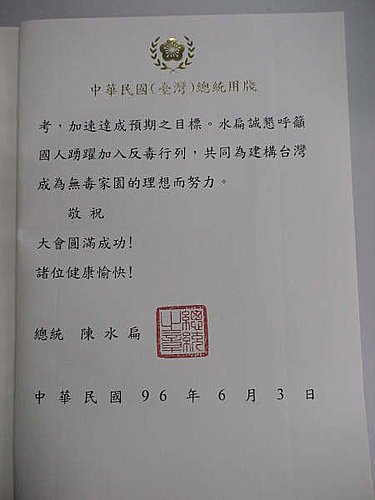 中華民國(臺灣)總統用牋
考，加速達成預期之目標。水扁誠懇呼籲
國人踴躍加入反毒行列，共同為建構台灣
成為無毒家園的理想而努力。
敬祝
大會圓滿成功！
諸位健康愉快！
總統 陳水扁
總統之章
中華民國 96 年 6 月 3 日